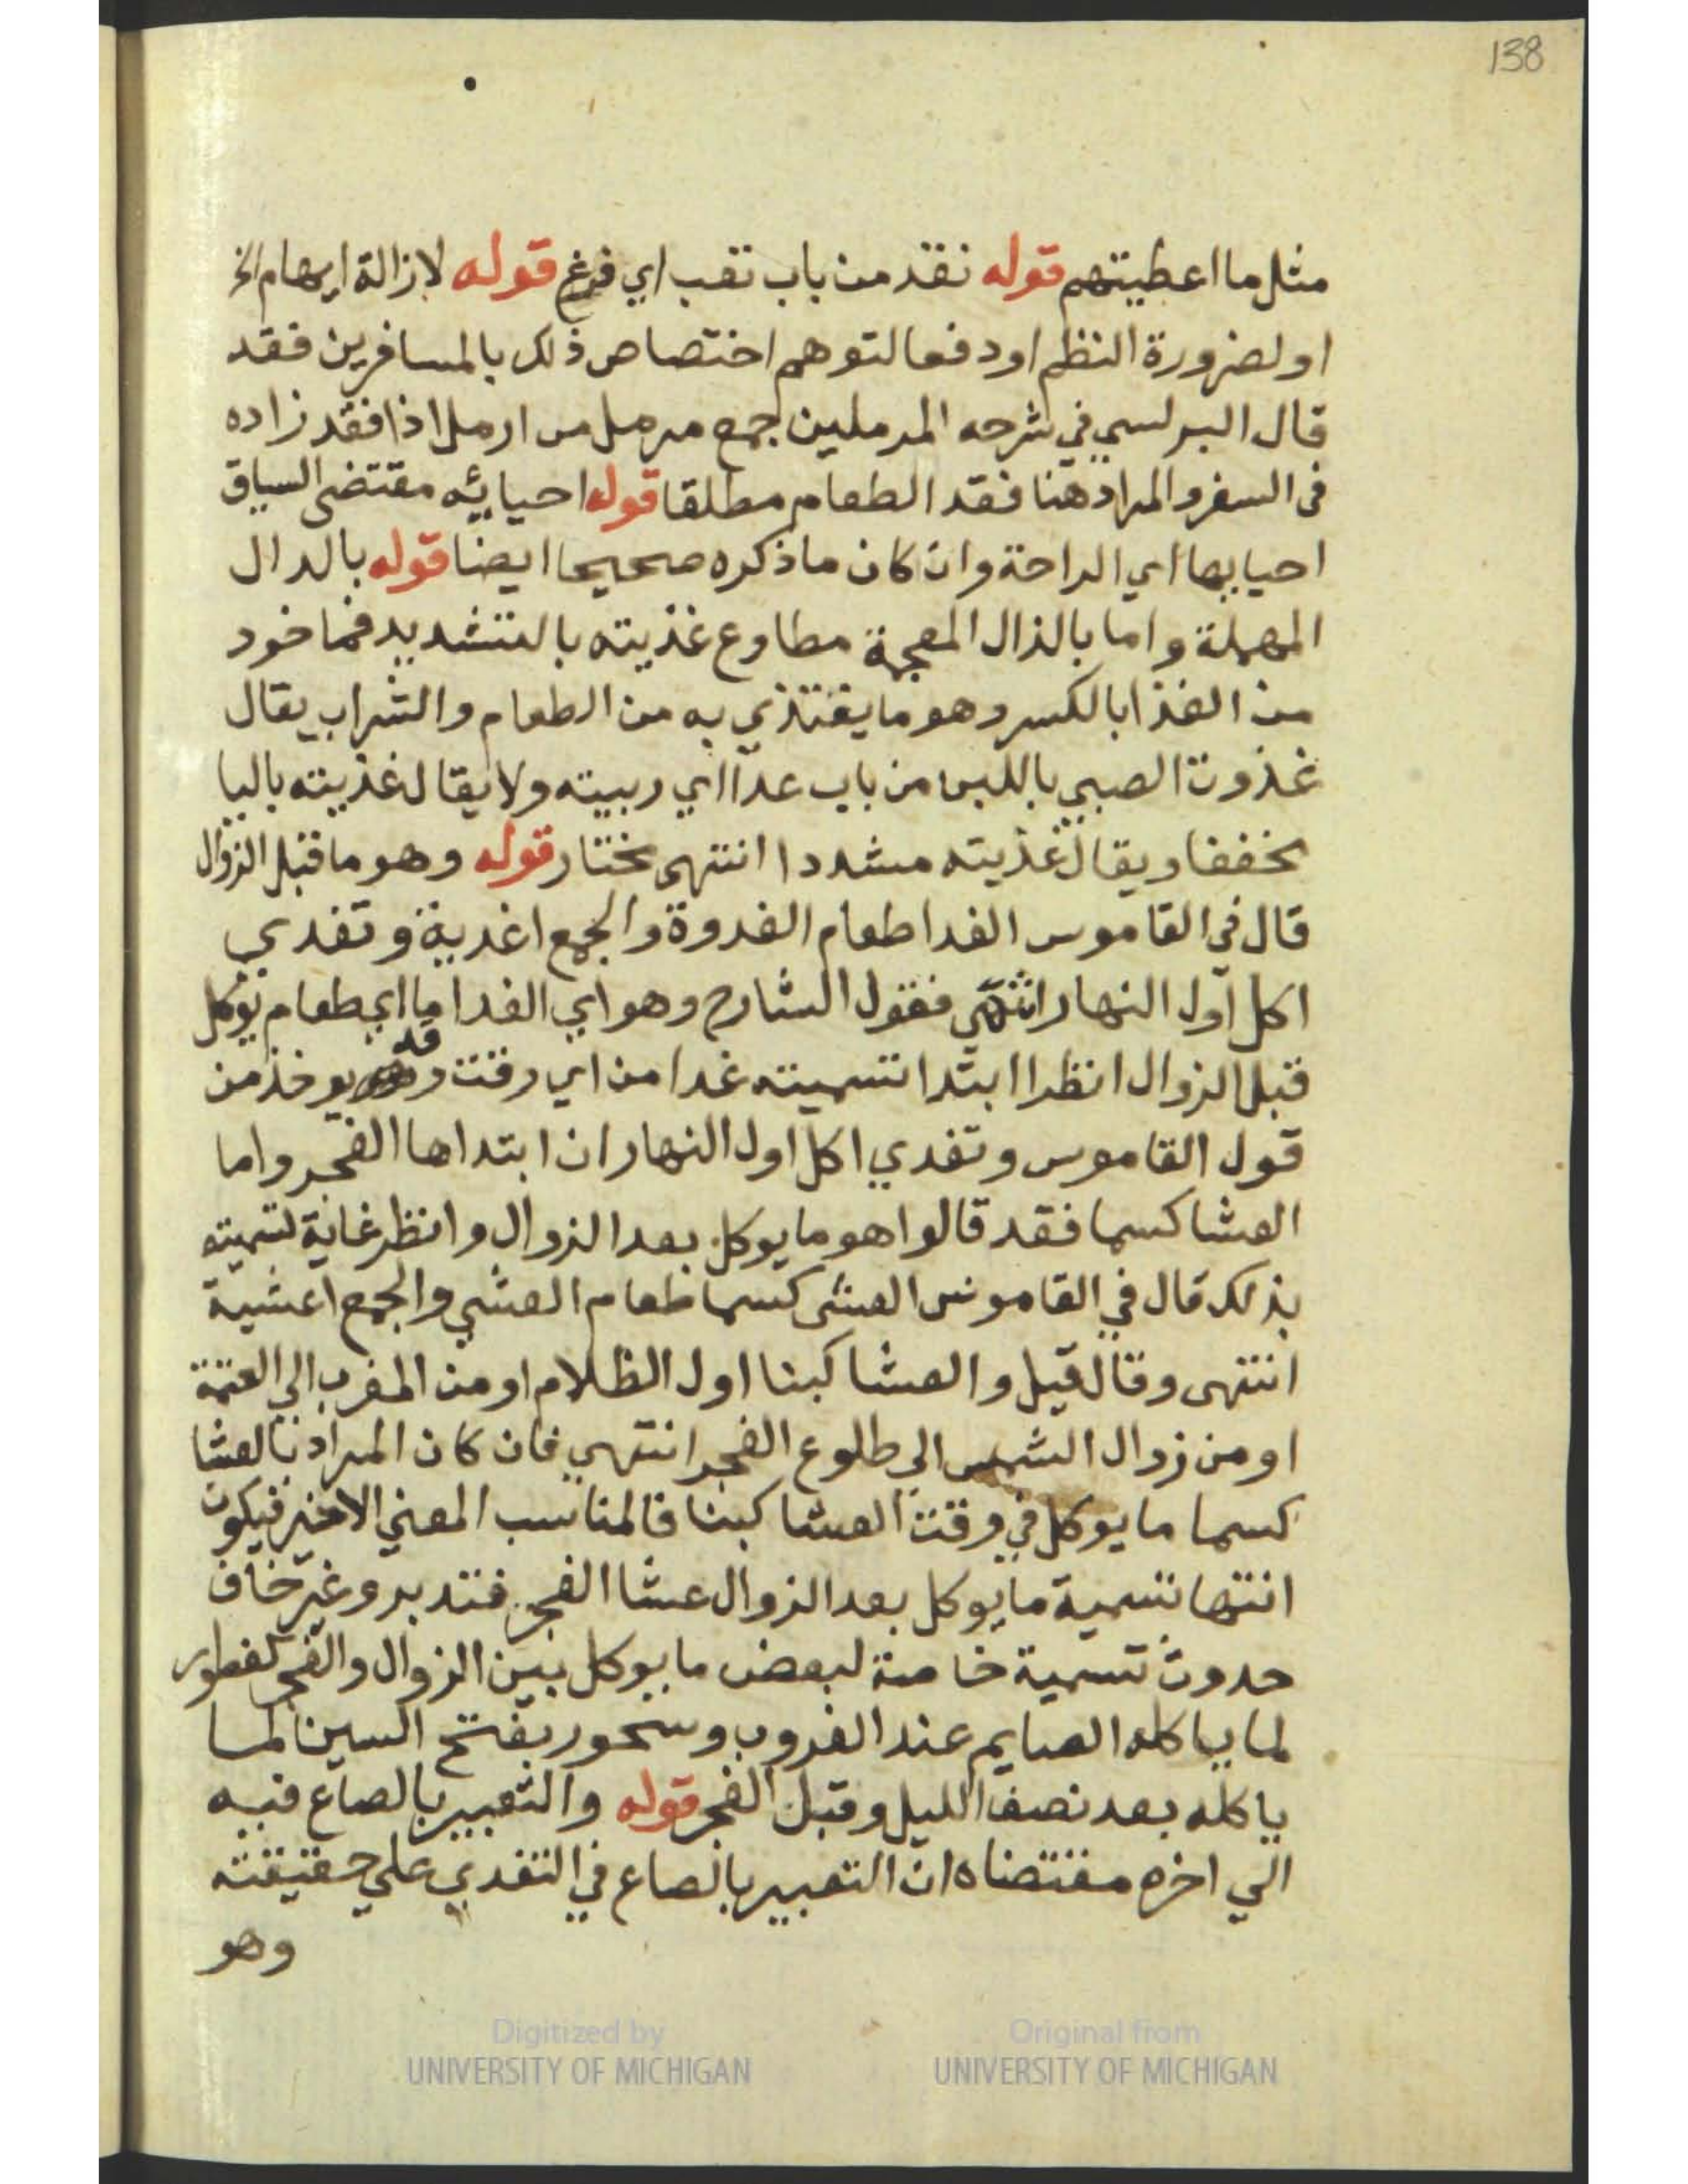 138
مثل ما اعطيتهم قوله نفد من باب تعب اي فرغ قوله لازالة ايهام الخ
او لضرورة النظم او دفعا لتوهم اختصاص ذلك بالمسافرين فقد
قال البرلسي في شرحه المرملين جمع مرمل من ارمل اذا فقد زاده
في السفر والمراد هنا فقد الطعام مطلقا قوله احيا بئه مقتضى السياق
احيا بها اي الراحة وان كان ما ذكره صحيحا ايضا قوله بالدال
المهملة واما بالذال المعجمة مطاوع غذيته بالتشديد فماخود
من الغذا بالكسر وهو ما يغتذي به من الطعام والشراب يقال
غذوت الصبي باللبن من باب عدا اي ربيته ولا يقال غذيته باليا
مخففا ويقال غذيته مشددا انتهى مختار قوله وهو ما قبل الزوال
قال في القاموس الغدا طعام الغدوة والجمع اغدية وتغدي
اكل اول النهار انتهي فقول الشارح وهو اي الغدا ما اي طعام يوكل
قبل الزوال انظر ابتدا تسميته غدا من اي وقت وقد يوخذ من
قول القاموس وتغدي اكل اول النهار ان ابتداها الفجر واما
العشا كسما فقد قالوا هو ما يوكل بعد الزوال وانظر غاية تسميته
بذلك قال في القاموس العشى كسما طعام العشي والجمع اعشية
انتهى وقال قبل والعشا كبنا اول الظلام او من المغرب الي العتمة
او من زوال الشمس الي طلوع الفجر انتهي فان كان المراد بالعشا
كسما ما يوكل في وقت العشا كبنا فالمناسب المعني الاخير فيكون
انتها تسمية ما يوكل بعد الزوال عشا الفجر فتدبر وغير خاف
حدوث تسمية خاصة لبعض ما يوكل بين الزوال والفجر كفطور
لما ياكله الصايم عند الغروب وسحور بفتح السين لما
ياكله بعد نصف الليل وقبل الفجر قوله والتعبير بالصاع فيه
الي اخره مقتضاه ان التعبير بالصاع في التغدي علي حقيقته
وهو
Digitized by
UNIVERSITY OF MICHIGAN
Original from
UNIVERSITY OF MICHIGAN